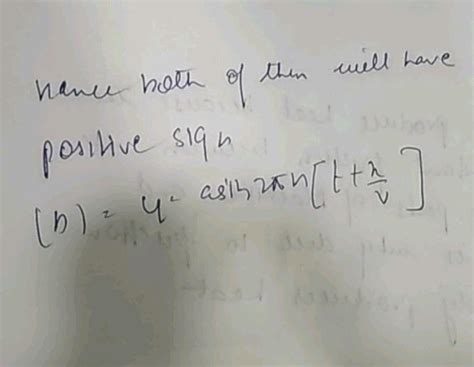 hance both of then will have
positive sign
(b) = y = asin 2πn [t + x/v]